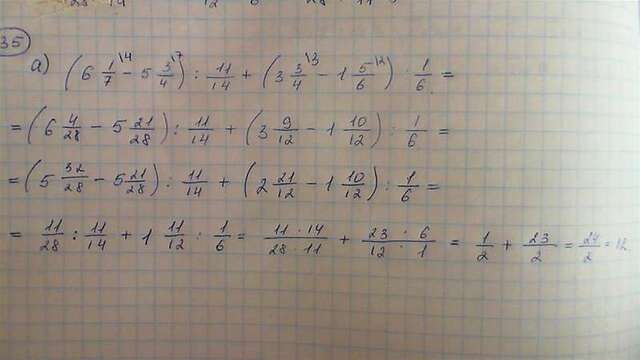 35
а) (6 1/7 \4 − 5 3/4 \7) : 11/14 + (3 3/4 \3 − 1 5/6 \2) : 1/6 =
= (6 4/28 − 5 21/28) : 11/14 + (3 9/12 − 1 10/12) : 1/6 =
= (5 32/28 − 5 21/28) : 11/14 + (2 21/12 − 1 10/12) : 1/6 =
= 11/28 : 11/14 + 1 11/12 : 1/6 = 11 · 14/28 · 11 + 23 · 6/12 · 1 = 1/2 + 23/2 = 24/2 = 12.